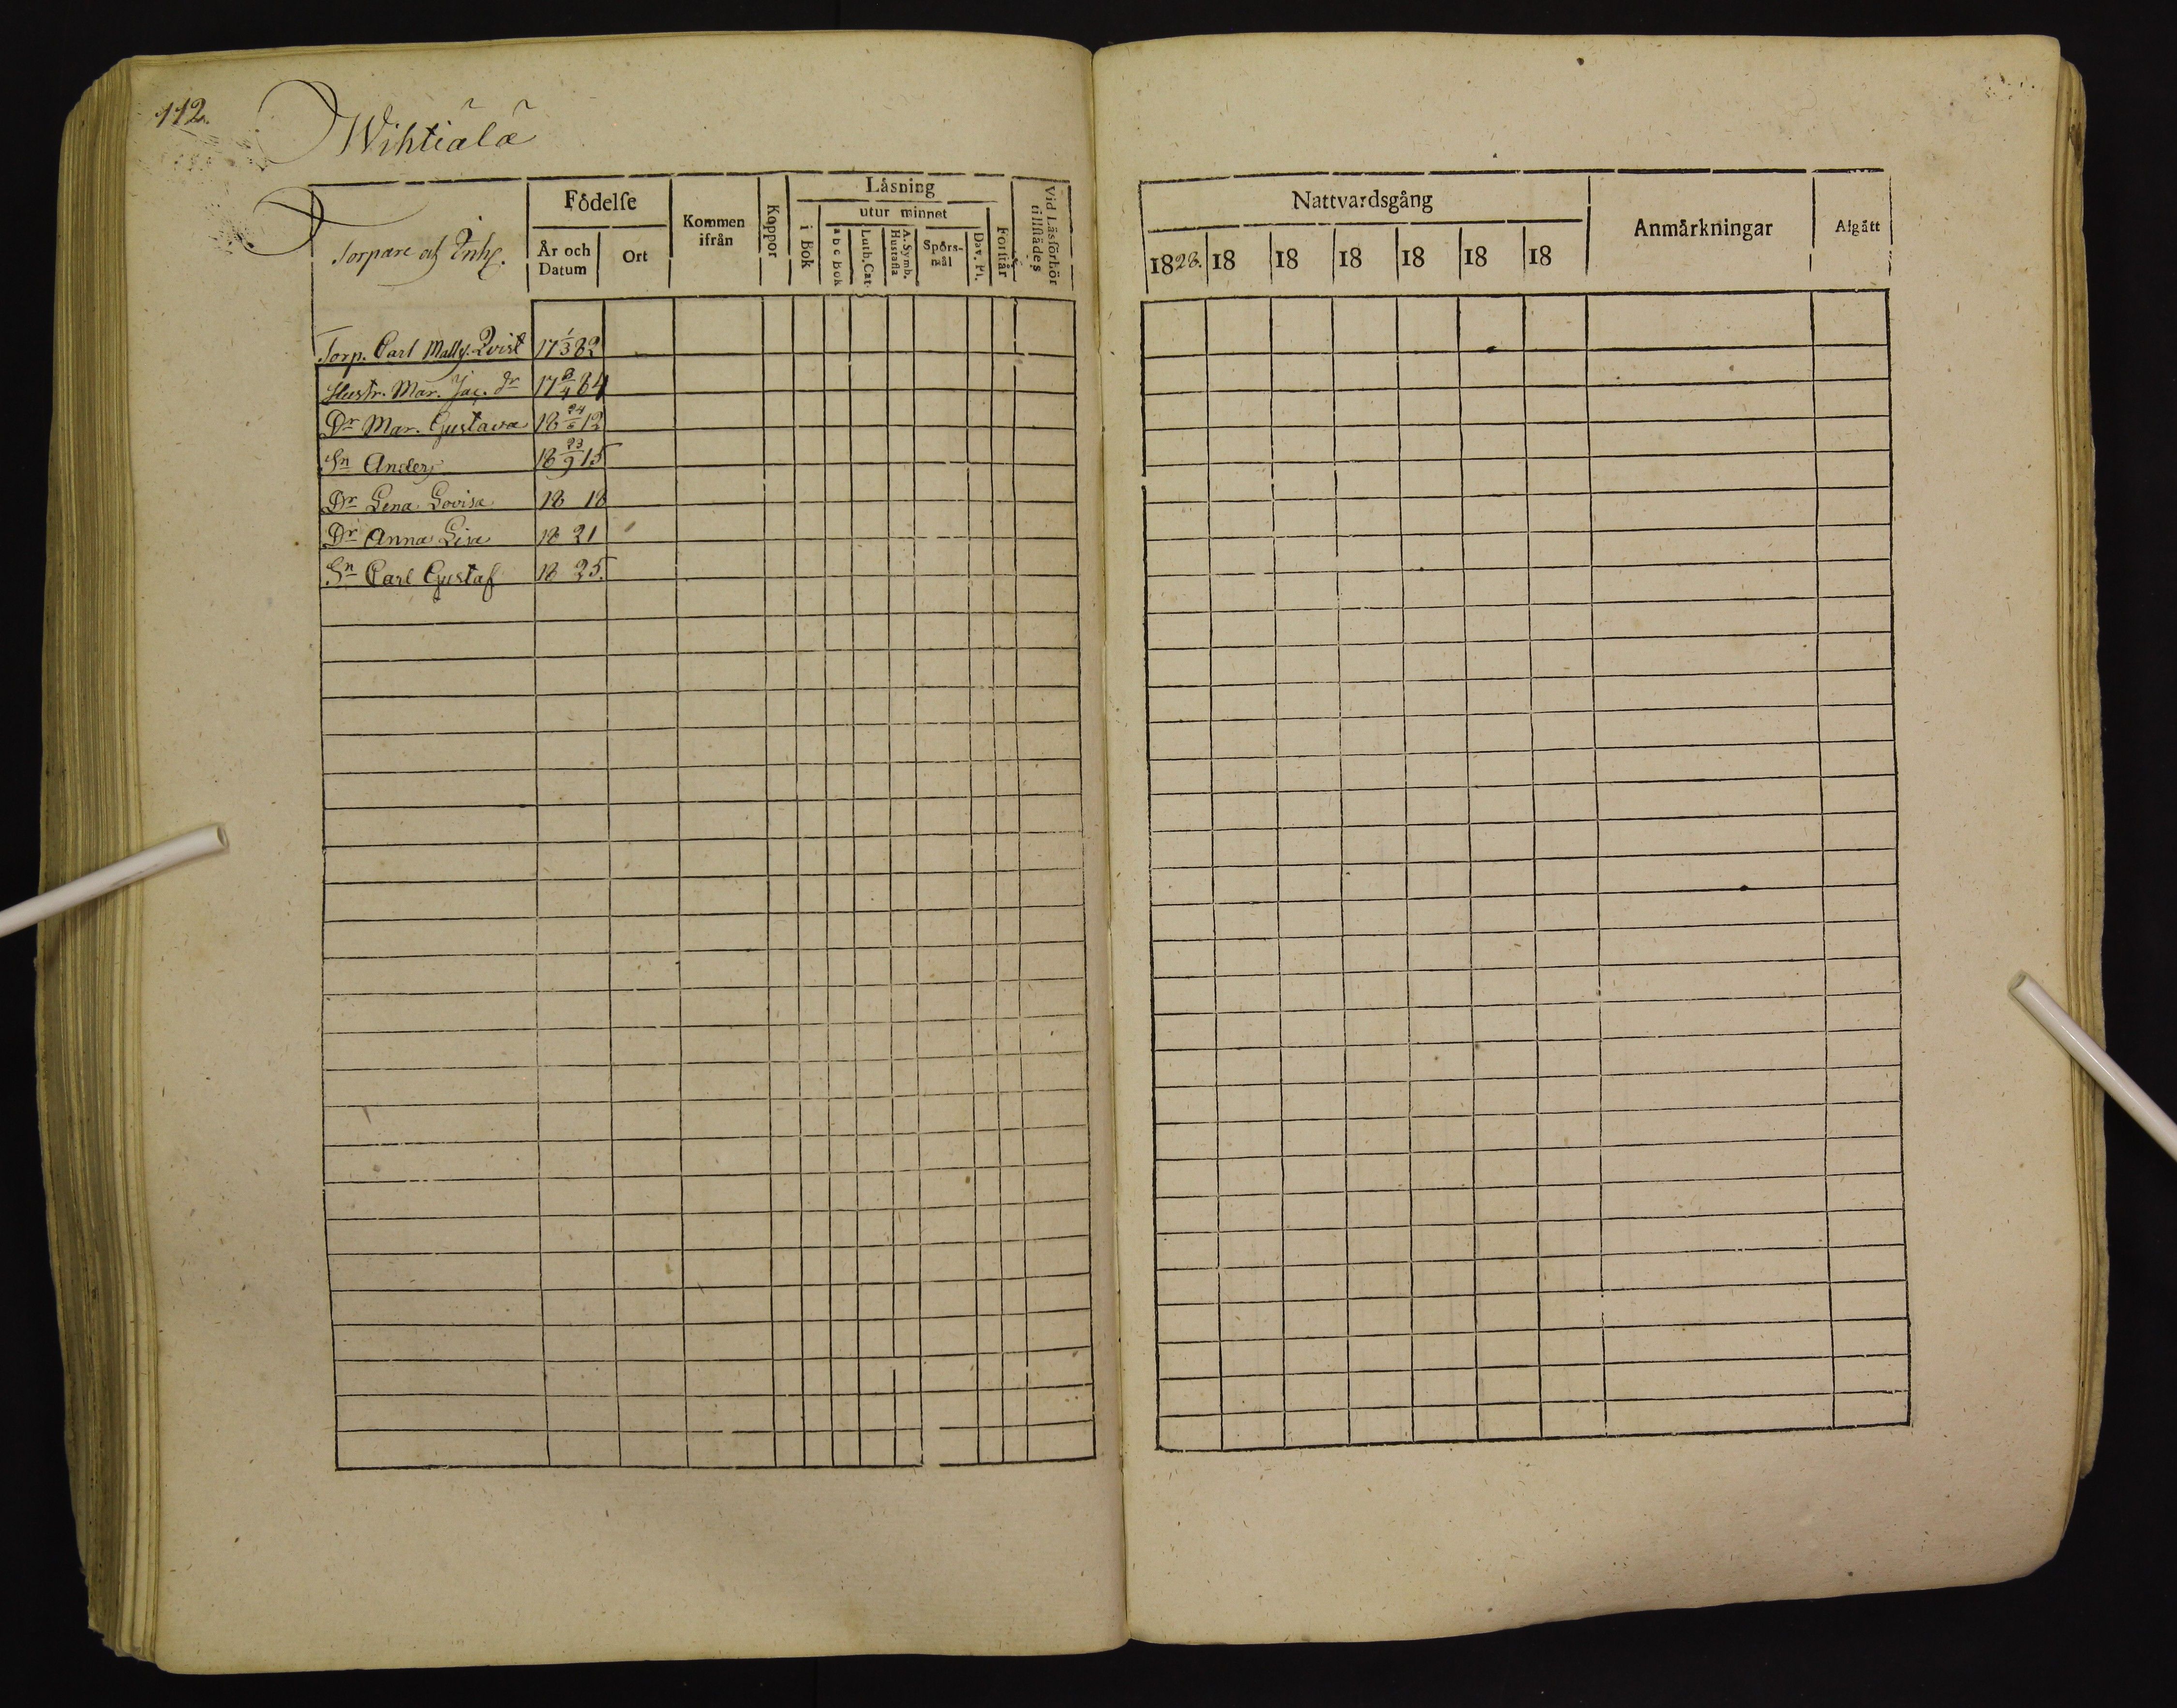 112.
Wihtiälä
Torpare af Inh.
Födelse
År och Datum
Ort
Kommen ifrån
Koppor
Läsning
i Bok
utur minnet
a b c Bok
Luth. Cat.
A. Symb. Hustafla
Spörsmål
Dav. Ps.
Förstår
Vid Läsförhör tillstädes
Nattvardsgång
1828. 18 18 18 18 18 18
Anmärkningar
Afgått
Torp. Carl Matts. Qvist 17 1/3 82
Hustr. Mar. Jac. dr 17 8/4 84
Dr Mar. Gustava 18 24/6 12
Sn Anders 18 23/9 15
Dr Lena Lovisa 18 18
Dr Anna Lisa 18 21
Sn Carl Gustaf 18 25.